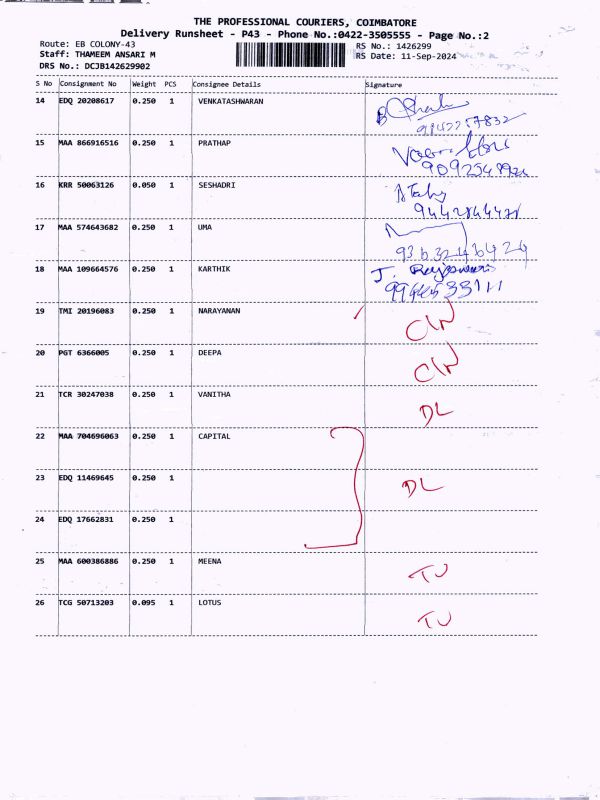 THE PROFESSIONAL COURIERS, COIMBATORE
Delivery Runsheet - P43 - Phone No.:0422-3505555 - Page No.:2
Route: EB COLONY-43 RS No.: 1426299
Staff: THAMEEM ANSARI M RS Date: 11-Sep-2024
DRS No.: DCJB142629902
S No Consignment No Weight PCS Consignee Details Signature
14 EDQ 20208617 0.250 1 VENKATASHWARAN
15 MAA 866916516 0.250 1 PRATHAP
16 KRR 50063126 0.050 1 SESHADRI
17 MAA 574643682 0.250 1 UMA
18 MAA 109664576 0.250 1 KARTHIK J. Rajeswari
19 TMI 20196083 0.250 1 NARAYANAN
20 PGT 6366005 0.250 1 DEEPA
21 TCR 30247038 0.250 1 VANITHA DL
22 MAA 704696063 0.250 1 CAPITAL
23 EDQ 11469645 0.250 1 DL
24 EDQ 17662831 0.250 1
25 MAA 600386886 0.250 1 MEENA TU
26 TCG 50713203 0.095 1 LOTUS TU